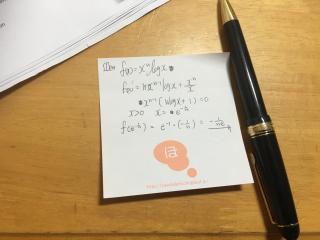 f(x) = xⁿ log x
f'(x) = nxⁿ⁻¹ log x + xⁿ/x
xⁿ⁻¹ (n log x + 1) = 0
x>0 x = e^(-1/n)
f(e^(-1/n)) = e⁻¹ · (-1/n) = -1/ne
ほ